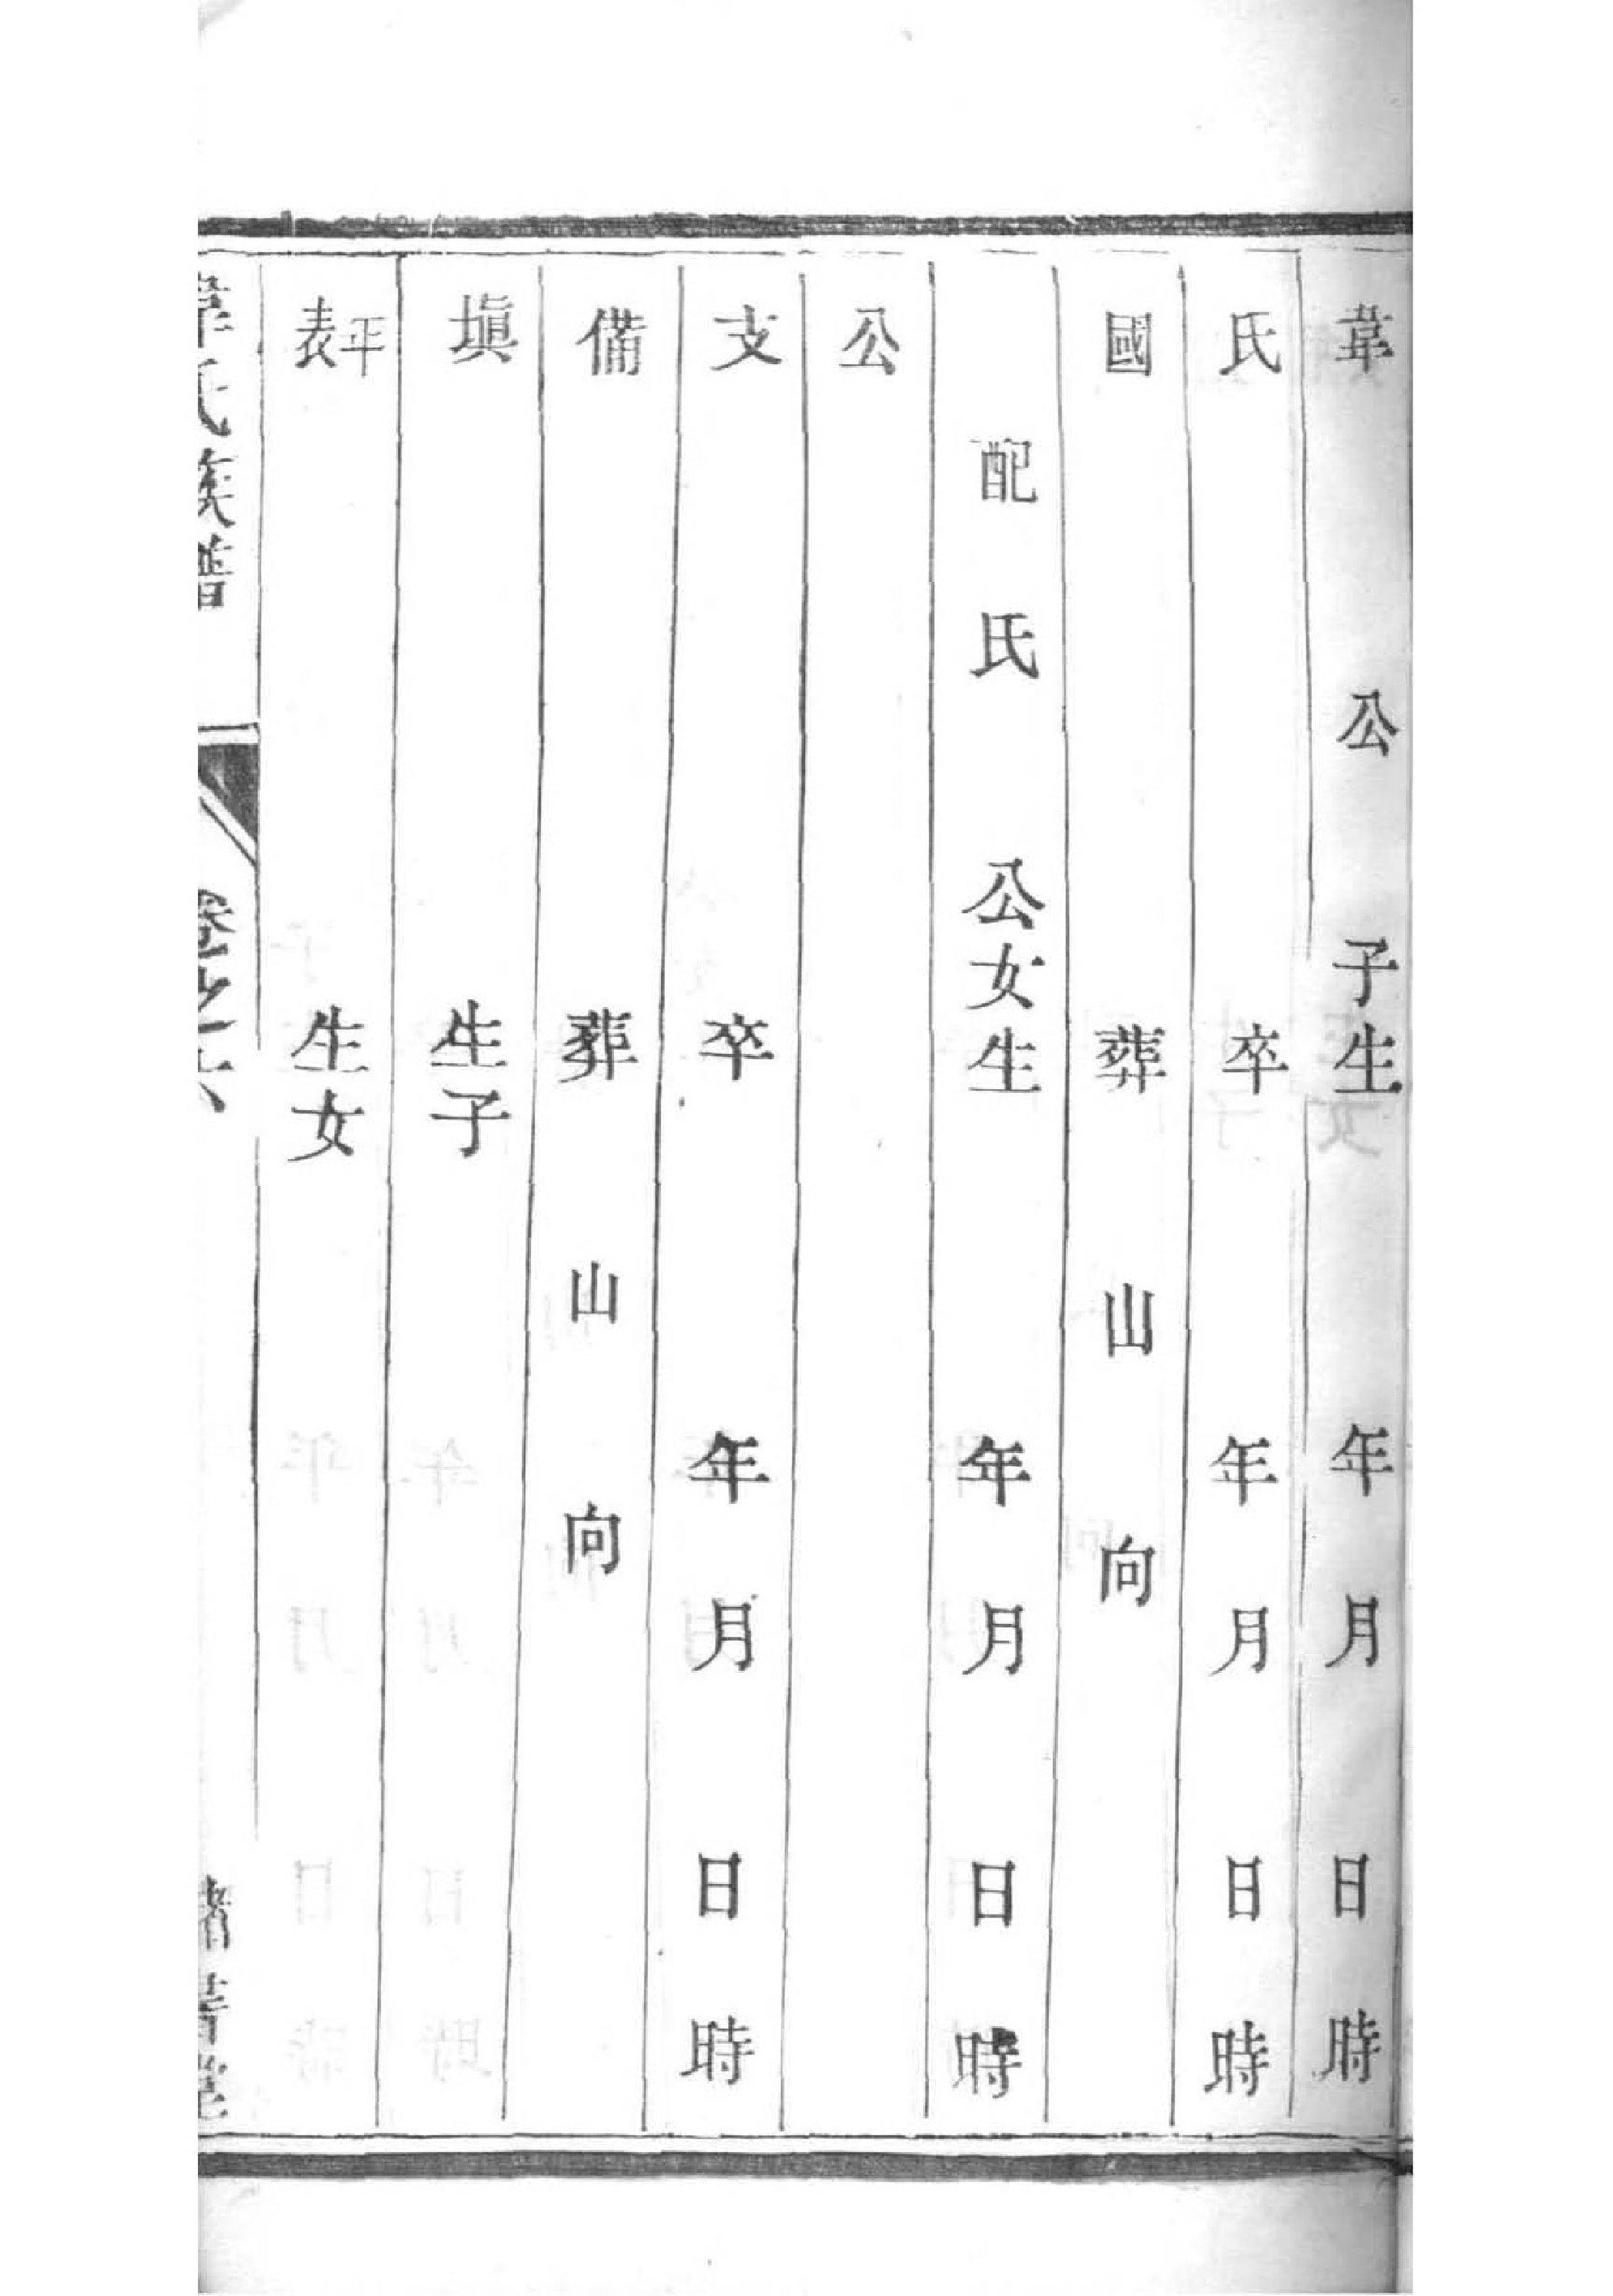 韋 公 子生 年 月 日 時
氏 卒 年 月 日 時
國 葬 山 向
配 氏 公女生 年 月 日 時
公
支 卒 年 月 日 時
備 葬 山 向
填 生子
年表 生女
韋氏族譜 卷之六 堂